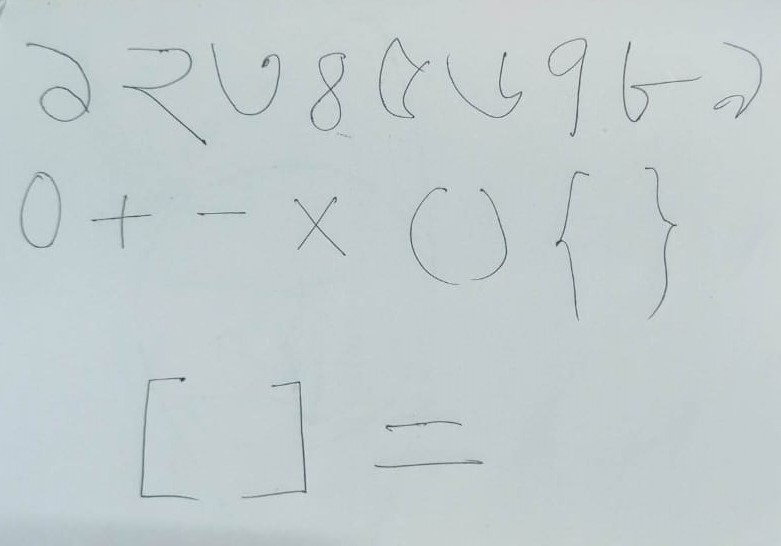 ১২৩৪৫৬৭৮৯
০ + - × () { }
[ ] =